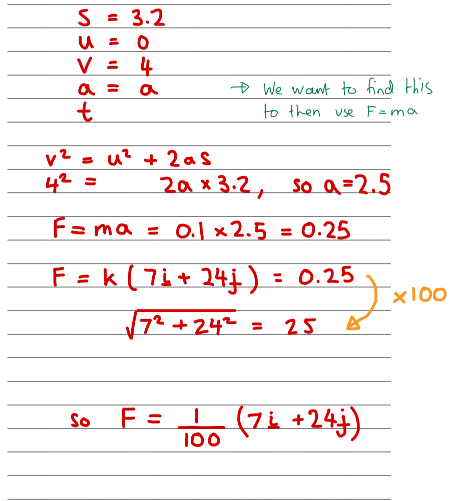 s = 3.2
u = 0
v = 4
a = a → We want to find this
t to then use F=ma
v² = u² + 2as
4² = 2a × 3.2, so a=2.5
F = ma = 0.1 × 2.5 = 0.25
F = k (7i + 24j) = 0.25
×100
√7² + 24² = 25
so F = 1/100 (7i + 24j)